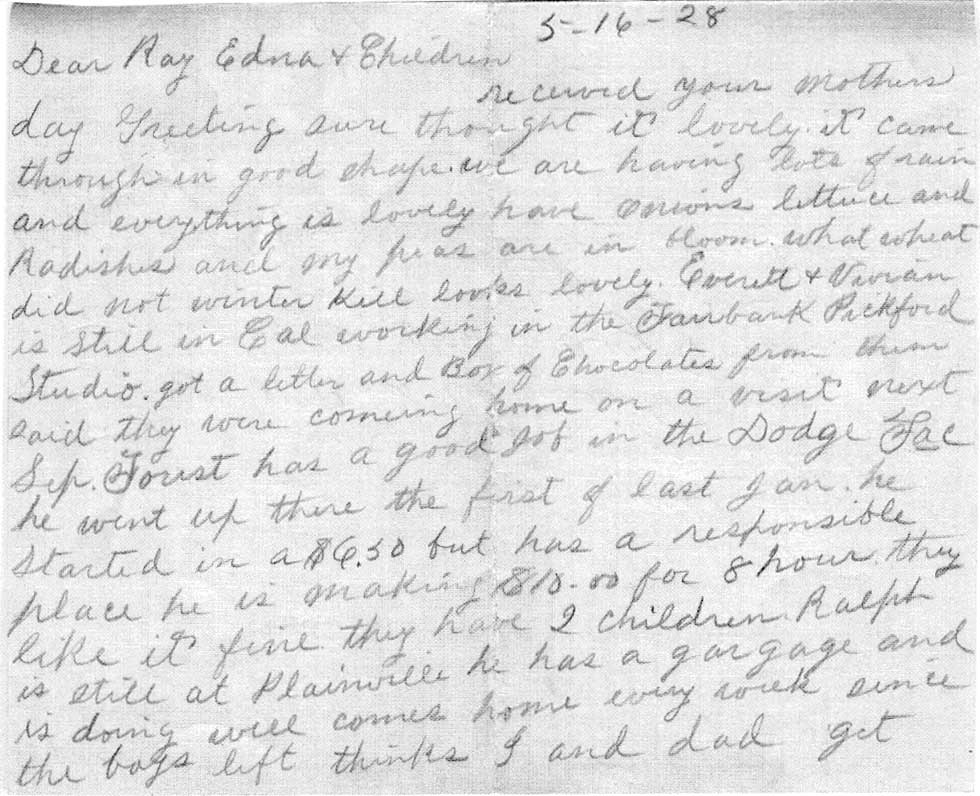 5-16-28
Dear Ray Edna & Children
received your mothers
day Greeting sure thought it lovely. it came
through in good shape. we are having lots of rain
and everything is lovely have onions lettuce and
Radishes and my peas are in bloom. what wheat
did not winter kill looks lovely. Everett & Vivian
is still in Cal working in the Fairbank Pickford
Studio. got a letter and Box of Chocolates from them
said they were comeing home on a visit next
Sep. Forest has a good job in the Dodge Fac
he went up there the first of last Jan. he
started in a $6.50 but has a responsible
place he is making $10.00 for 8 hour. they
like it fine they have 2 children. Ralph
is still at Plainville he has a gargage and
is doing well comes home every week since
the boys left thinks I and dad get